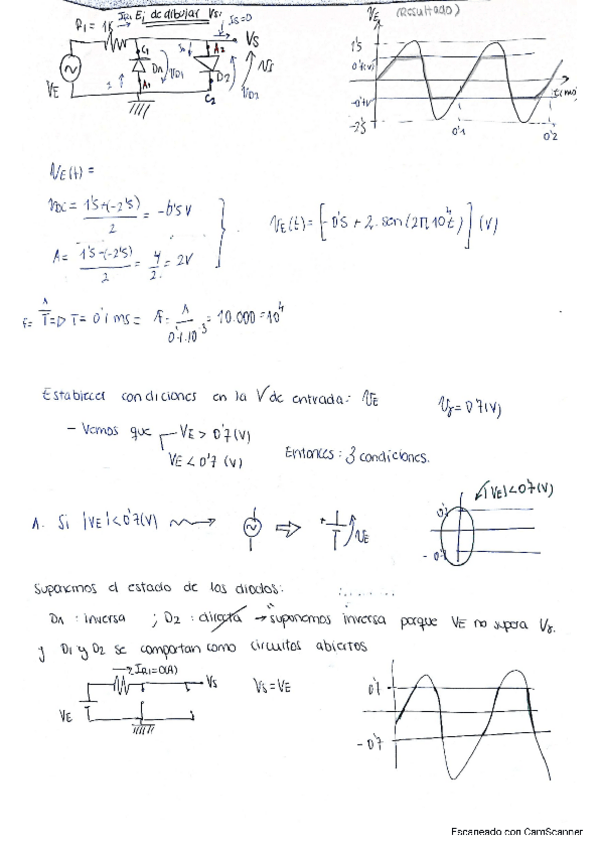 Ej de dibujar Vs:
R1 = 1K
IR1
Is=0
VE
C1
D1
A1
VD1
A2
D2
C2
VD2
VS
VE (Resultado)
1'5
0'7(V)
-0'7V
-2'5
0'1
0'2
t(ms)
VE(t) =
VDC = 1'5+(-2'5) / 2 = -0'5 V
A = 1'5-(-2'5) / 2 = 4/2 = 2V
VE(t) = [-0'5 + 2·sen(2π·10⁴t)] (V)
f = 1/T => T = 0'1 ms = f = 1 / 0'1·10⁻³ = 10.000 = 10⁴
Establecer condiciones en la V de entrada: VE
Vγ = 0'7(V)
- Vemos que VE > 0'7(V)
VE < 0'7 (V)
Entonces: 3 condiciones.
1. Si |VE| < 0'7(V)
VE
|VE| < 0'7(V)
Suponemos el estado de los diodos:
D1: inversa ; D2: directa → suponemos inversa porque VE no supera Vγ.
y D1 y D2 se comportan como circuitos abiertos
IR1=0(A)
VS
VE
Vs = VE
0'7
-0'7
Escaneado con CamScanner